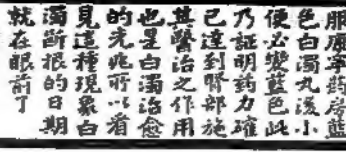 服寧药房藍
色白濁丸後小
便必變藍色此
乃証明药力確
已達到腎部施
其醫治之作用
也是白濁治愈
的先兆所以看
見這種現象白
濁斷根的日期
就在眼前了